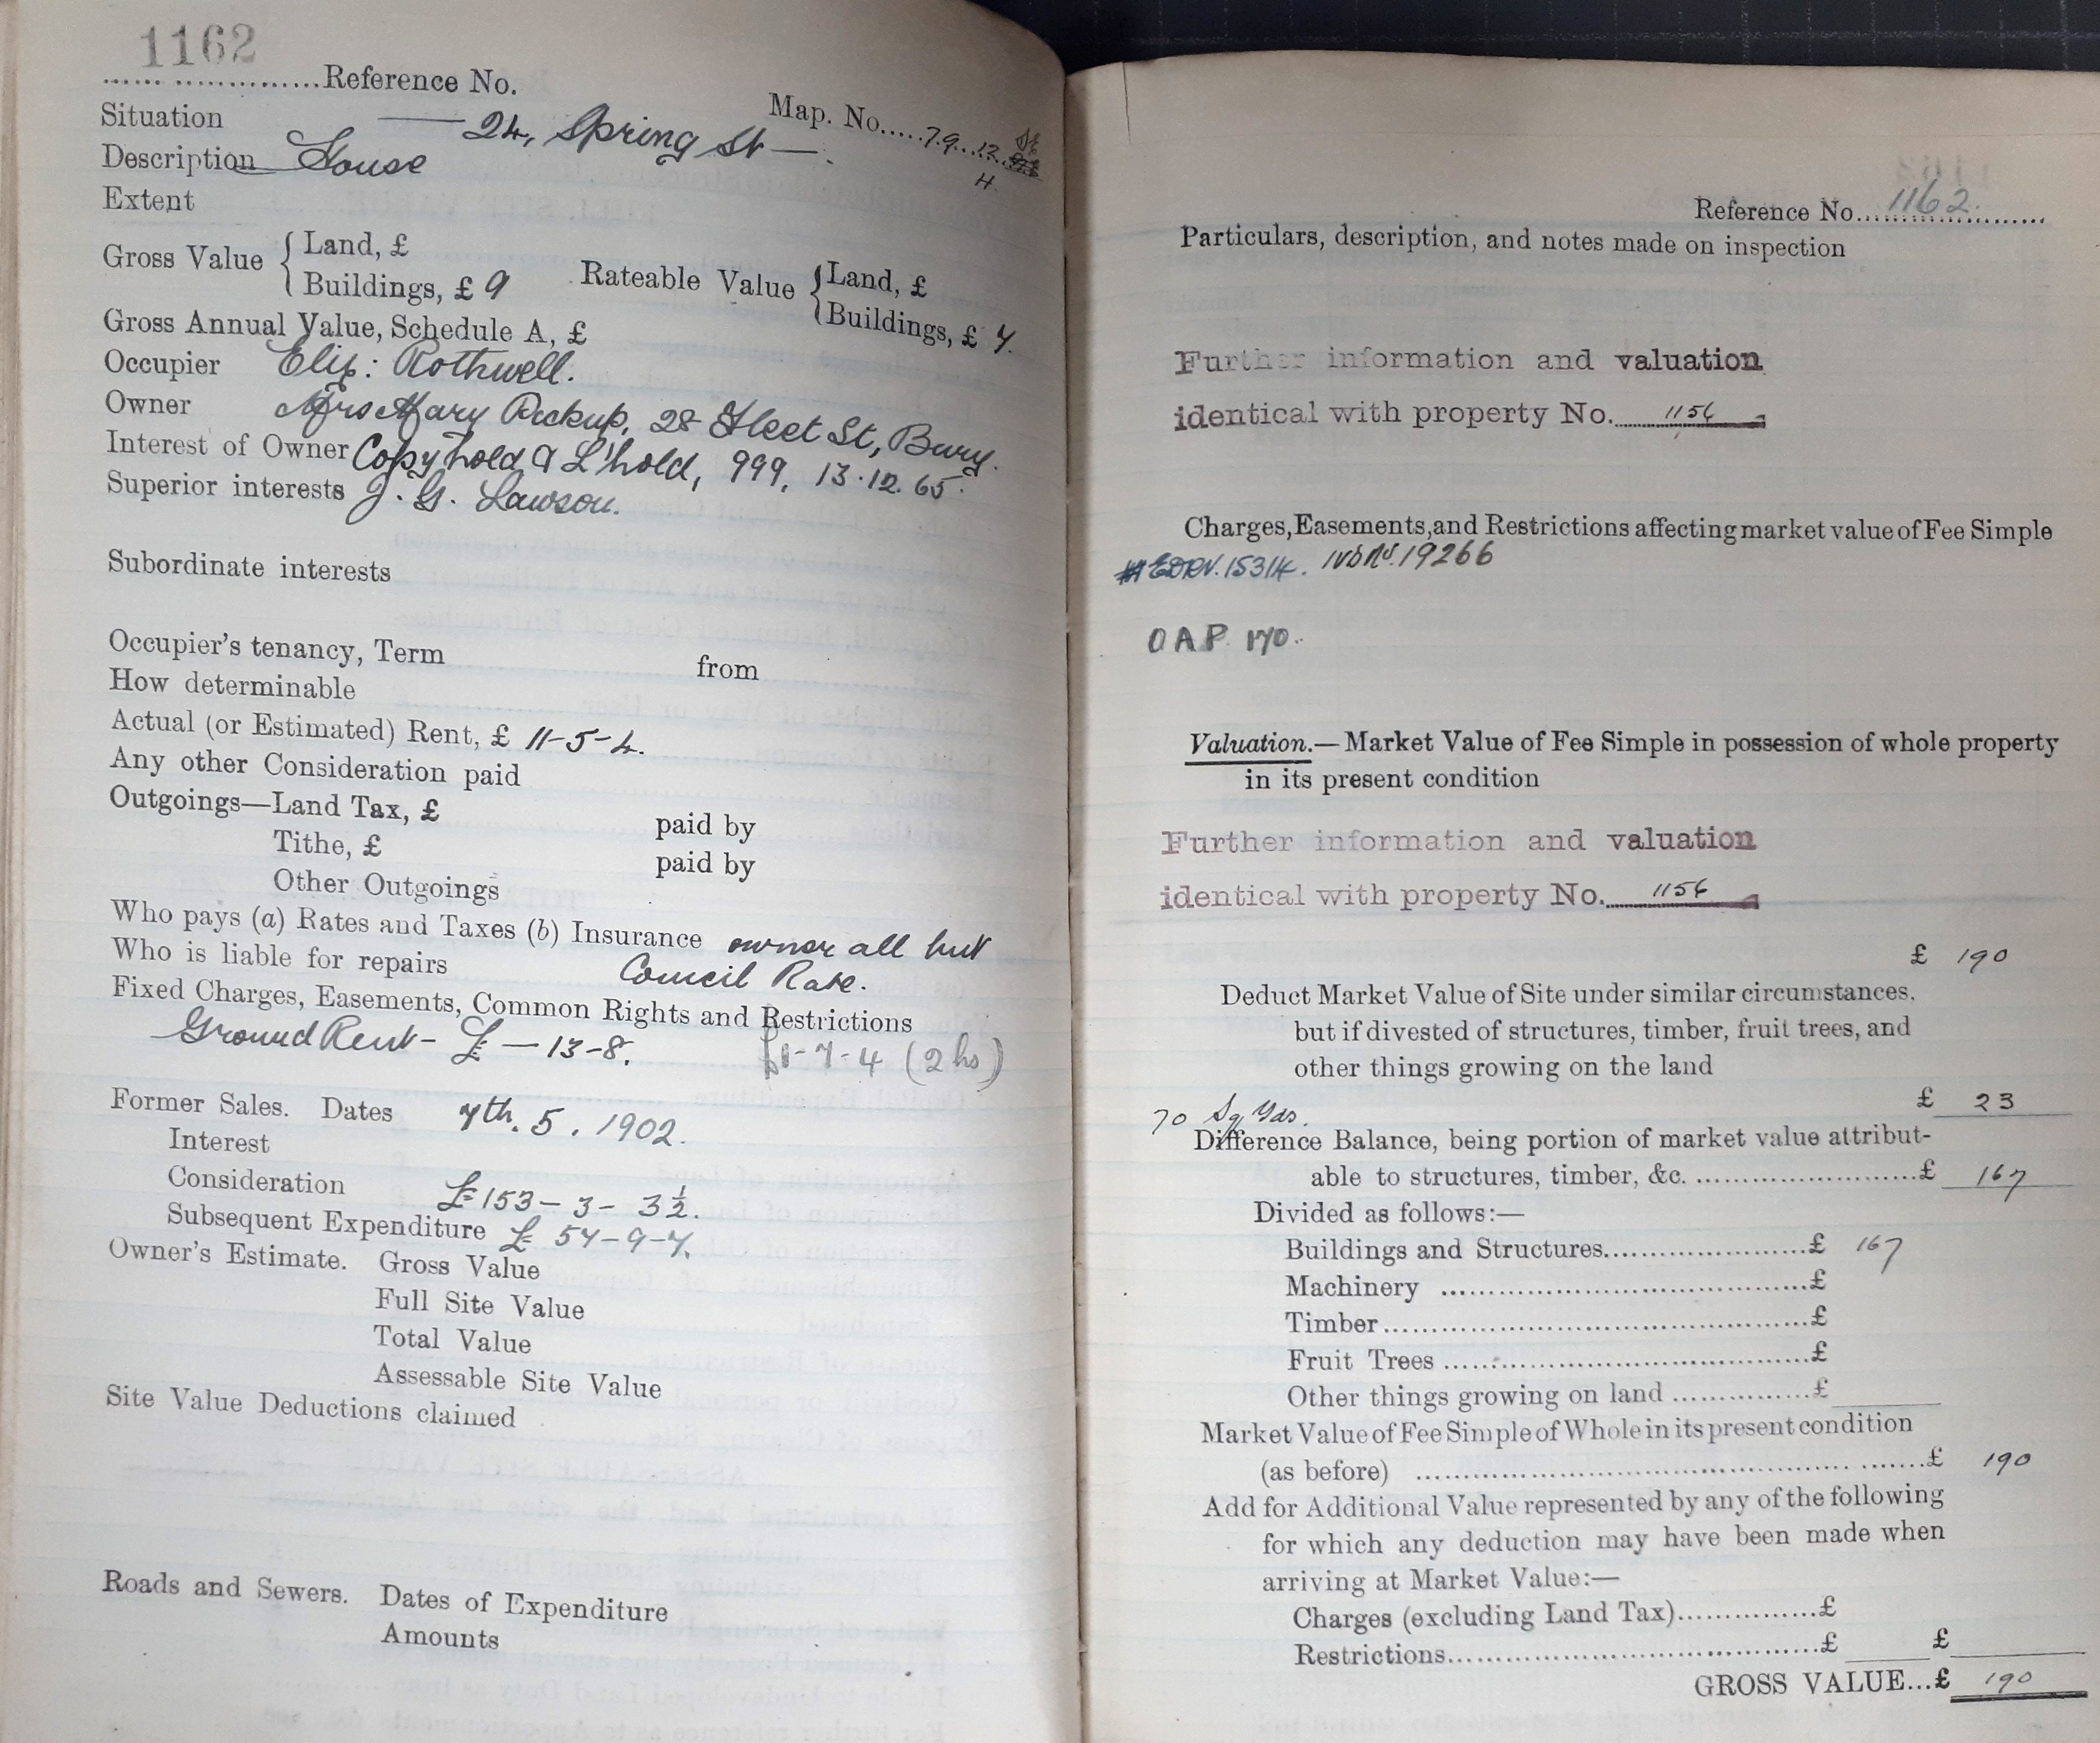 1162
Reference No.
Map. No. 79. 12
H.
Situation — 24, Spring St —.
Description House
Extent
Gross Value { Land, £
Buildings, £ 9
Rateable Value { Land, £
Buildings, £ 7.
Gross Annual Value, Schedule A, £
Occupier Eliz: Rothwell.
Owner Mrs Mary Pickup, 28 Fleet St, Bury.
Interest of Owner Copyhold & L'hold, 999, 13.12.65.
Superior interests J. G. Lawson.
Subordinate interests
Occupier's tenancy, Term from
How determinable
Actual (or Estimated) Rent, £ 11-5-4.
Any other Consideration paid
Outgoings—Land Tax, £ paid by
Tithe, £ paid by
Other Outgoings
Who pays (a) Rates and Taxes (b) Insurance owner all but
Who is liable for repairs Council Rate.
Fixed Charges, Easements, Common Rights and Restrictions
Ground Rent - £ — 13-8. £1-7-4 (2 hs)
Former Sales. Dates 7th. 5. 1902.
Interest
Consideration £153-3-3½.
Subsequent Expenditure £ 57-9-7.
Owner's Estimate. Gross Value
Full Site Value
Total Value
Assessable Site Value
Site Value Deductions claimed
Roads and Sewers. Dates of Expenditure
Amounts
Reference No. 1162.
Particulars, description, and notes made on inspection
Further information and valuation
identical with property No. 1156
Charges, Easements, and Restrictions affecting market value of Fee Simple
15314. 19266
O A P 170.
Valuation.—Market Value of Fee Simple in possession of whole property
in its present condition
Further information and valuation
identical with property No. 1156
£ 190
Deduct Market Value of Site under similar circumstances,
but if divested of structures, timber, fruit trees, and
other things growing on the land
£ 23
70 Sq Yds.
Difference Balance, being portion of market value attribut-
able to structures, timber, &c. £ 167
Divided as follows:—
Buildings and Structures £ 167
Machinery £
Timber £
Fruit Trees £
Other things growing on land £
Market Value of Fee Simple of Whole in its present condition
(as before) £ 190
Add for Additional Value represented by any of the following
for which any deduction may have been made when
arriving at Market Value:—
Charges (excluding Land Tax) £
Restrictions £ £
GROSS VALUE...£ 190